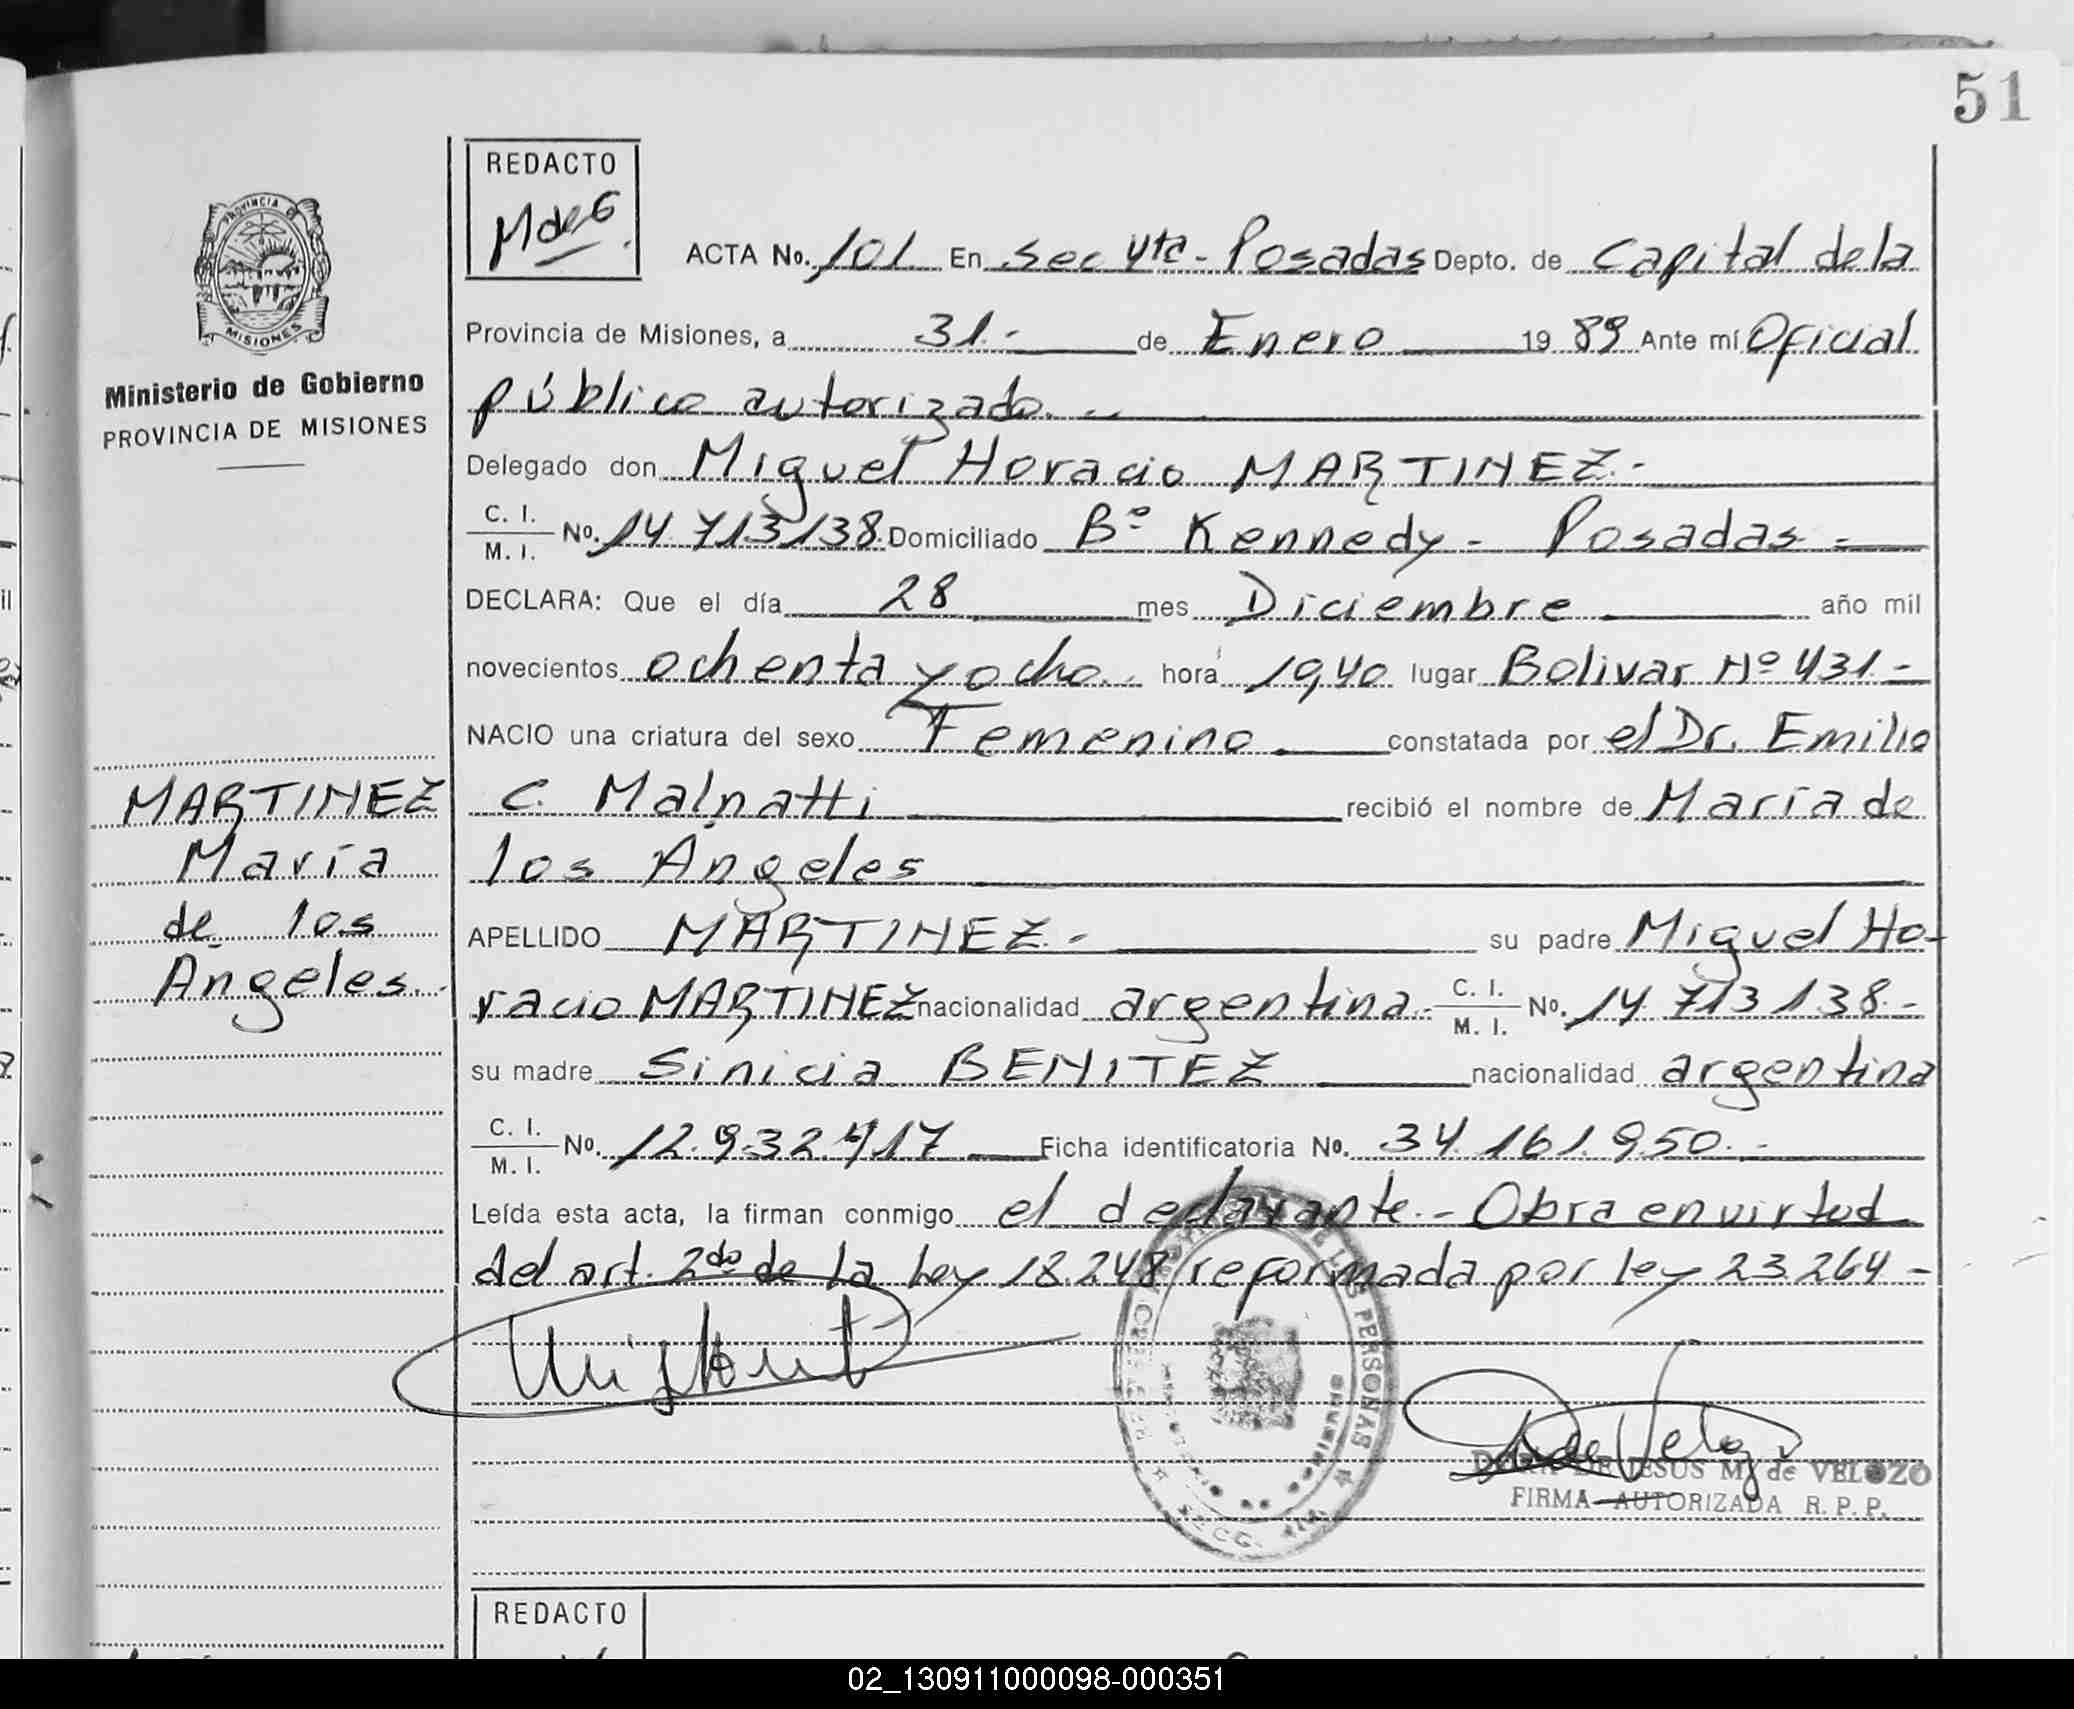 51
REDACTO
M de G.
PROVINCIA DE
MISIONES
Ministerio de Gobierno
PROVINCIA DE MISIONES
ACTA No. 101 En Sec 4ta - Posadas Depto. de Capital de la
Provincia de Misiones, a 31.- de Enero 19 89 Ante mí Oficial
público autorizado. -
Delegado don Miguel Horacio MARTINEZ.-
C. I.
M. I. No. 14.713.138. Domiciliado Bº Kennedy - Posadas -
DECLARA: Que el día 28 mes Diciembre año mil
novecientos ochenta y ocho hora 19,40 lugar Bolivar Nº 431.-
NACIO una criatura del sexo Femenino constatada por el Dr. Emilio
C. Malnatti recibió el nombre de María de
los Angeles
APELLIDO MARTINEZ.- su padre Miguel Ho-
racio MARTINEZ nacionalidad argentina.- C. I.
M. I. No. 14.713.138.-
su madre Sinicia BENITEZ nacionalidad argentina
C. I.
M. I. No. 12.932.417 Ficha identificatoria No. 34.161.950.-
Leída esta acta, la firman conmigo el declarante.- Obra en virtud
del art. 2do de la Ley 18.248 reformada por ley 23.264 -
MARTINEZ
María
de los
Angeles.
DE LAS PERSONAS
SECC.
DORA DE JESUS M. de VELOZO
FIRMA AUTORIZADA R. P. P.
REDACTO
02_130911000098-000351